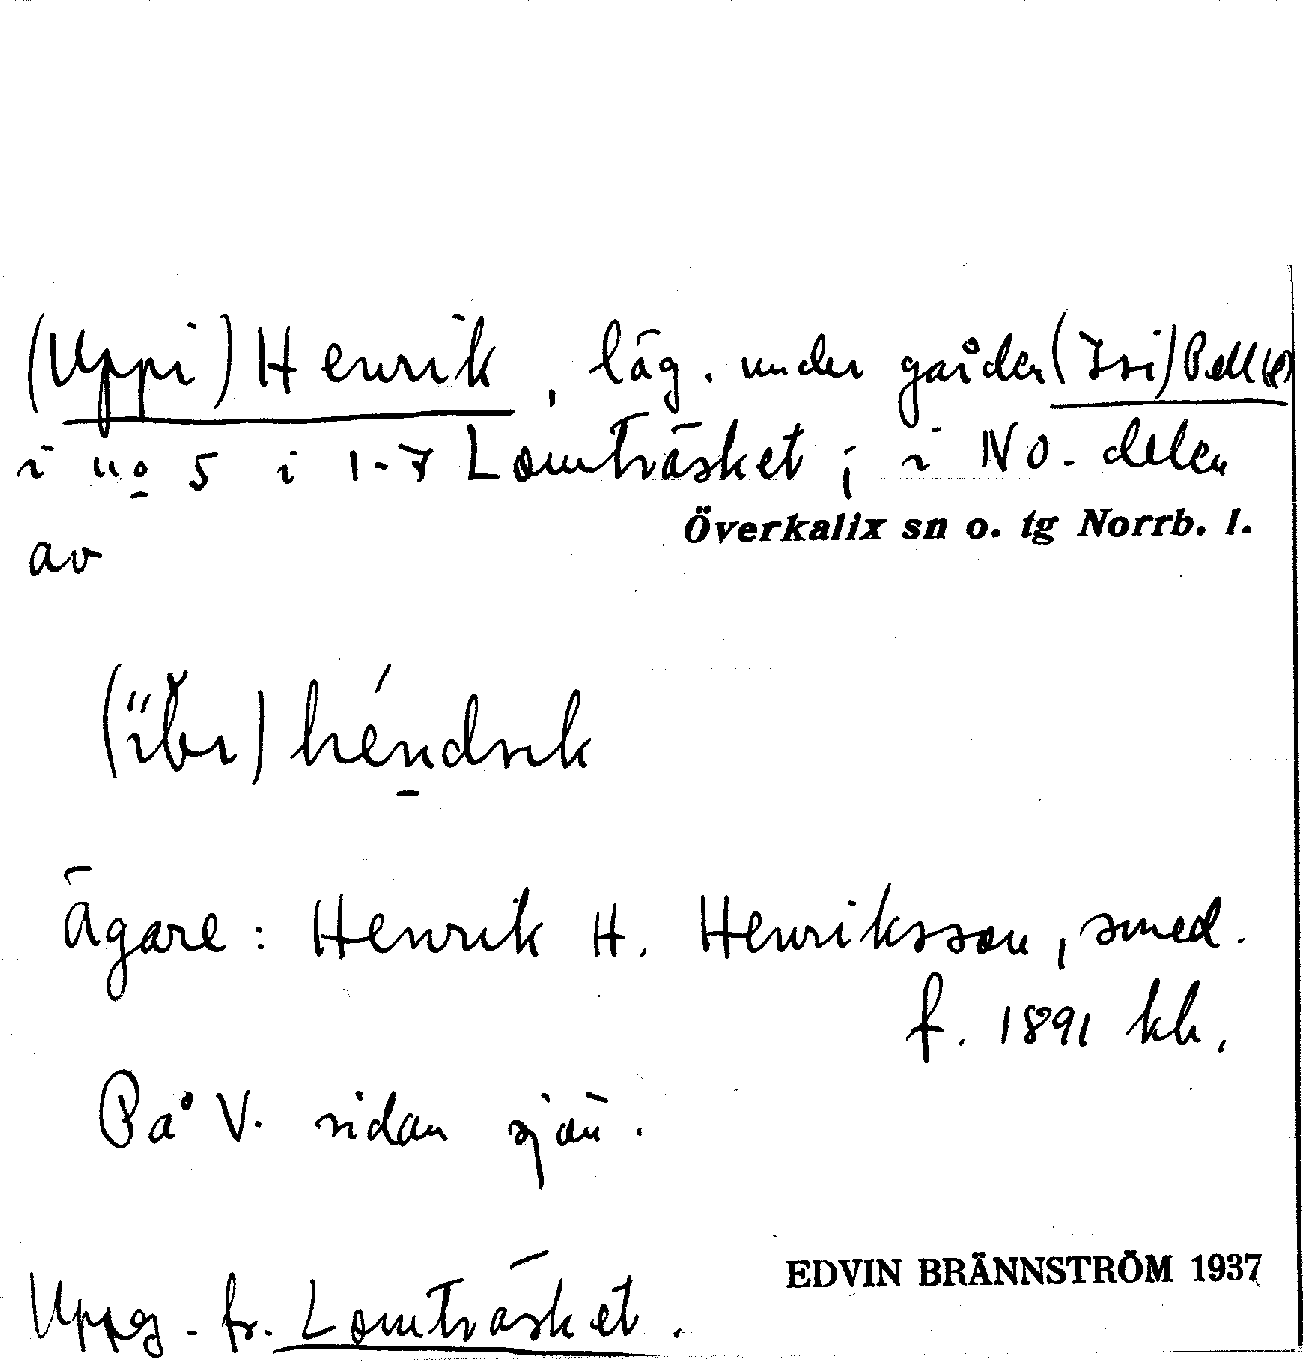 (Uppi) Henrik, läg. under gården (Isi) Pell(e)
i no 5 i 1-7 Lomträsket; i NO. delen
av
Överkalix sn o. tg Norrb. l.
héndrik
Ägare: Henrik H. Henriksson, smed.
f. 1891 kh.
På V. sidan sjön.
EDVIN BRÄNNSTRÖM 1937
Uppg. fr. Lomträsket.